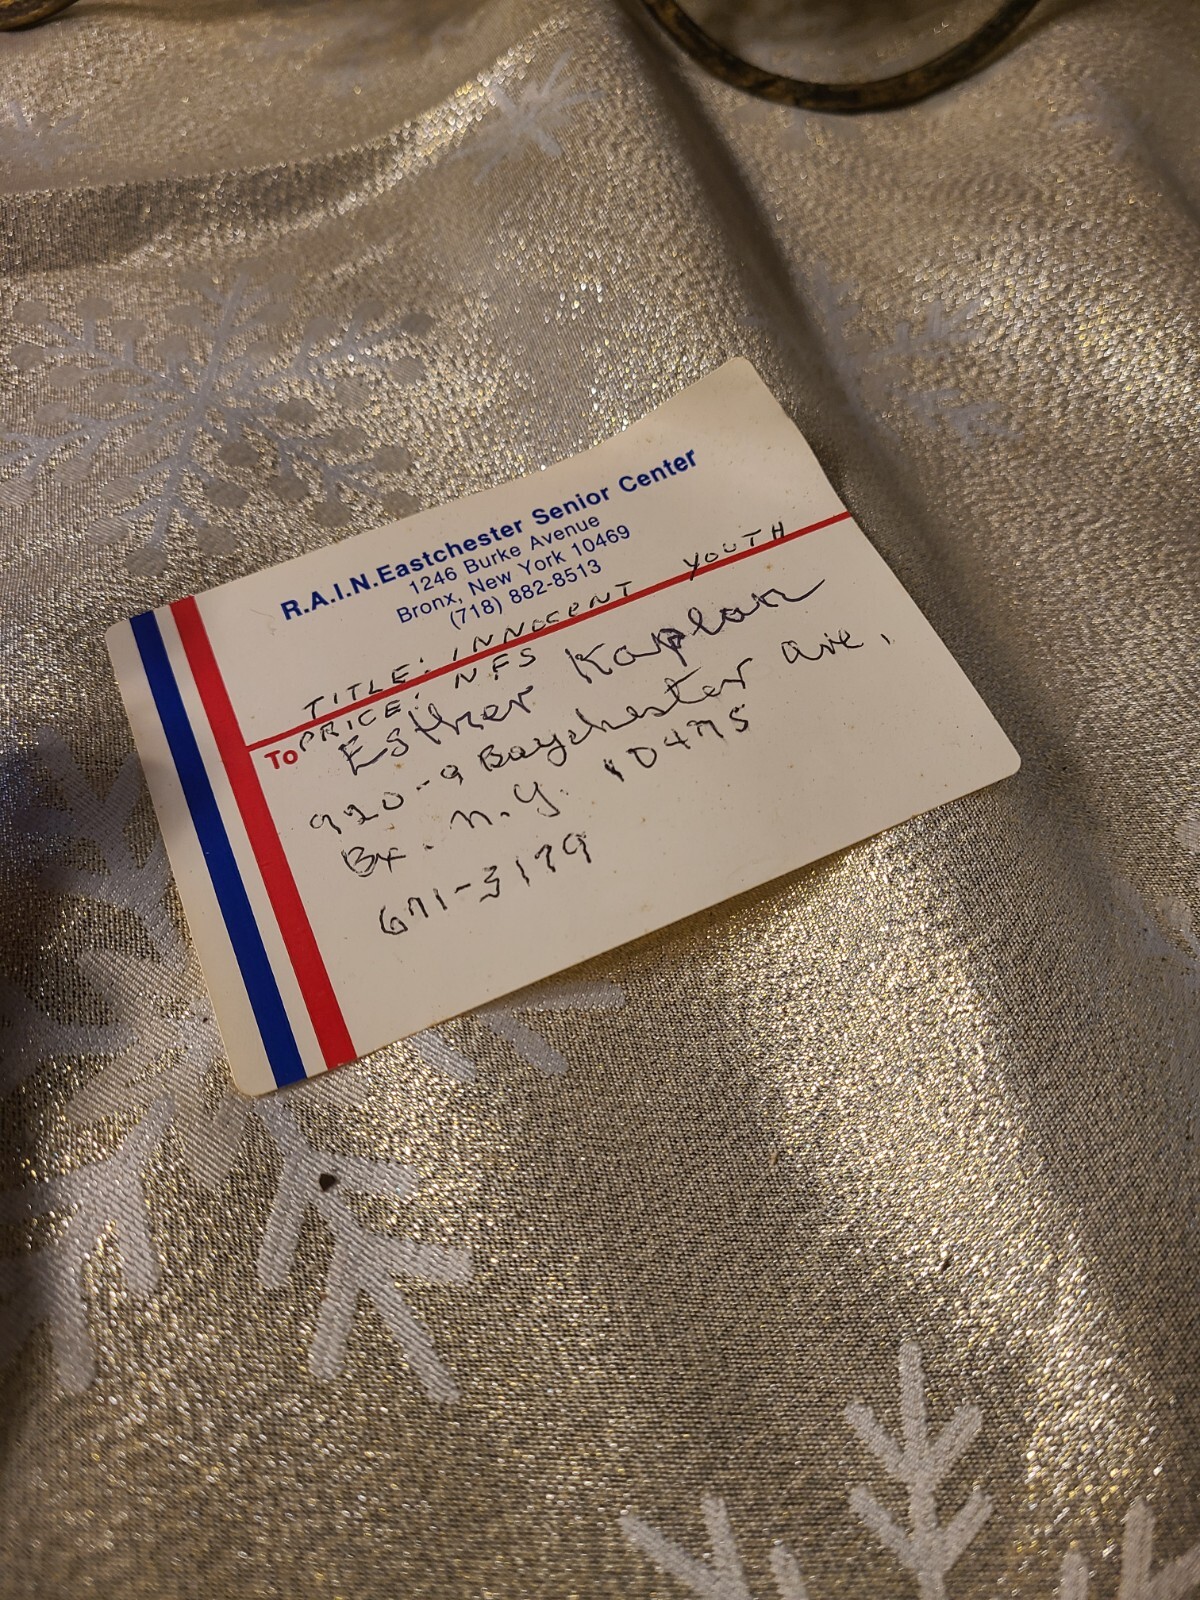 R.A.I.N.Eastchester Senior Center
1246 Burke Avenue
Bronx, New York 10469
(718) 882-8513
TITLE: INNOCENT YOUTH
PRICE: NFS
To Esther Kaplan
920-9 Baychester Ave.
Bx. N.Y. 10475
671-3179